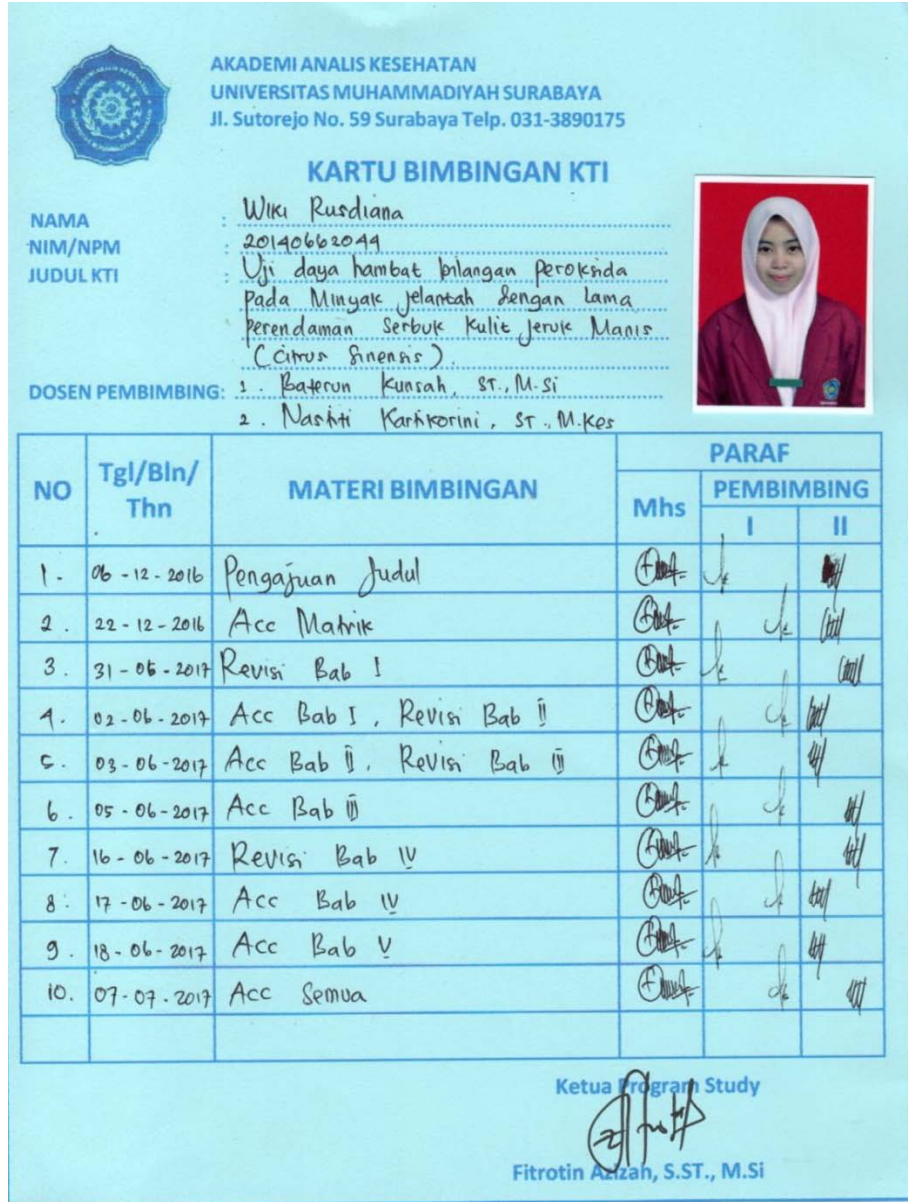 AKADEMI ANALIS KESEHATAN
UNIVERSITAS MUHAMMADIYAH SURABAYA
Jl. Sutorejo No. 59 Surabaya Telp. 031-3890175
KARTU BIMBINGAN KTI
NAMA : Wiki Rusdiana
NIM/NPM : 20140662044
JUDUL KTI : Uji daya hambat bilangan Peroksida
pada Minyak jelantah dengan lama
perendaman Serbuk Kulit Jeruk Manis
(Citrus Sinensis).
DOSEN PEMBIMBING: 1. Baterun Kunsah, ST., M.Si
2. Nastiti Kartikorini, ST., M.Kes
NO Tgl/Bln/Thn MATERI BIMBINGAN PARAF
Mhs PEMBIMBING
I II
1. 06-12-2016 Pengajuan Judul
2. 22-12-2016 Acc Matrik
3. 31-05-2017 Revisi Bab I
4. 02-06-2017 Acc Bab I, Revisi Bab II
5. 03-06-2017 Acc Bab II, Revisi Bab III
6. 05-06-2017 Acc Bab III
7. 16-06-2017 Revisi Bab IV
8. 17-06-2017 Acc Bab IV
9. 18-06-2017 Acc Bab V
10. 07-07-2017 Acc Semua
Ketua Program Study
Fitrotin Azizah, S.ST., M.Si